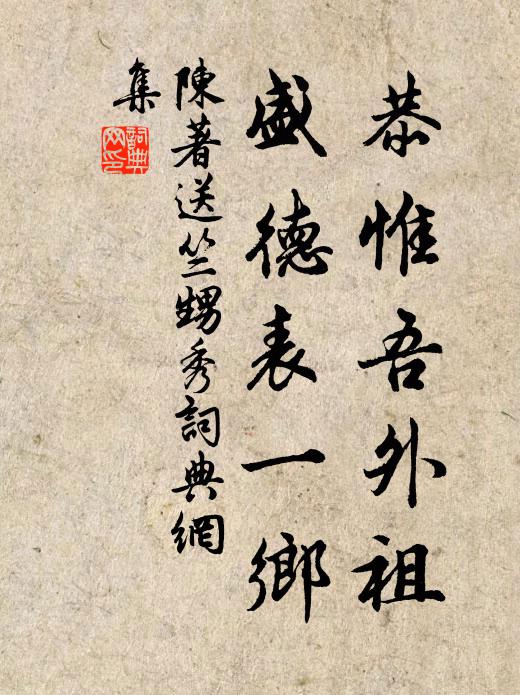 恭惟吾外祖
盛德表一鄉
陳著送竺甥秀詞典網
集
詞典
网印